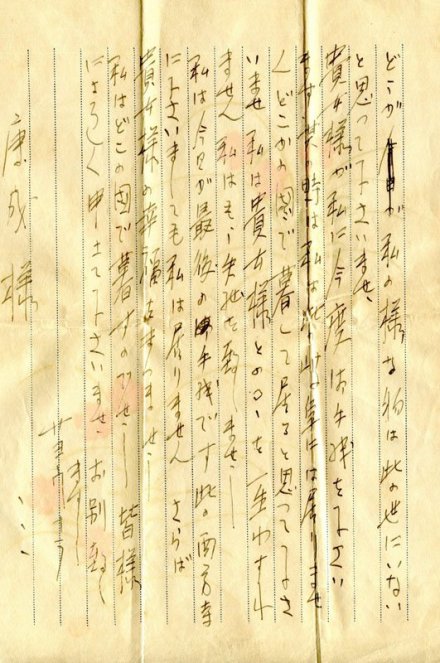 どこかが私の様な物は此の世にいない
と思って下さいませ、
貴方様が私に今度は手紙を下さい
ます其の時は私は此の岐阜には居りませ
んどこかの国で暮して居ると思って下さ
いませ私は貴方様との〇!を一生わすれ
ません私はもう失礼を致しませう
私は今日が最後の手紙です此の西方寺
に下さいましても私は居りません さらば
貴方様の幸福をまつませう
私はどこの国で暮すのでせう 皆様
によろしく申上て下さいませ、お別致し
ます
康成様